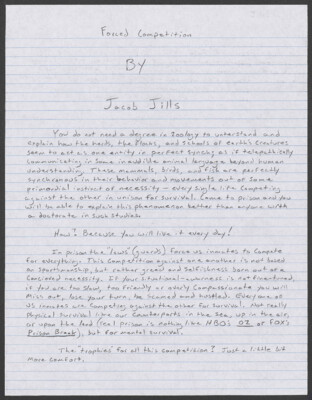 Forced Competition
BY
Jacob Jills
You do not need a degree in Zoology to understand and
explain how the herds, the flocks, and schools of earth's creatures
seem to act as one entity in perfect synchs as if telepathically
communicating in some inaudible animal language beyond human
understanding. These mammals, birds, and fish are perfectly
synchronous in their behavior and movements out of some
primordial instinct of necessity - every single life competing
against the other in unison for survival. Come to prison and you
will be able to explain this phenomenon better than anyone with
a doctorate in such studies.
How? Because you will live it every day!
In prison the "cows" (guards) force us inmates to compete
for everything. This competition against one another is not based
on sportsmanship, but rather greed and selfishness born out of a
conceited necessity. If your situational-awareness is not transformed,
if you are too slow, too friendly or overly compassionate you will
miss out, lose your turn, be scammed and hustled. Everyone of
us inmates are competing against the other for survival. Not really
physical survival like our counterparts in the sea, up in the air,
or upon the land (real prison is nothing like HBO's OZ or FOX's
Prison Break), but for mental survival.
The trophies for all this competition? Just a little bit
more comfort.